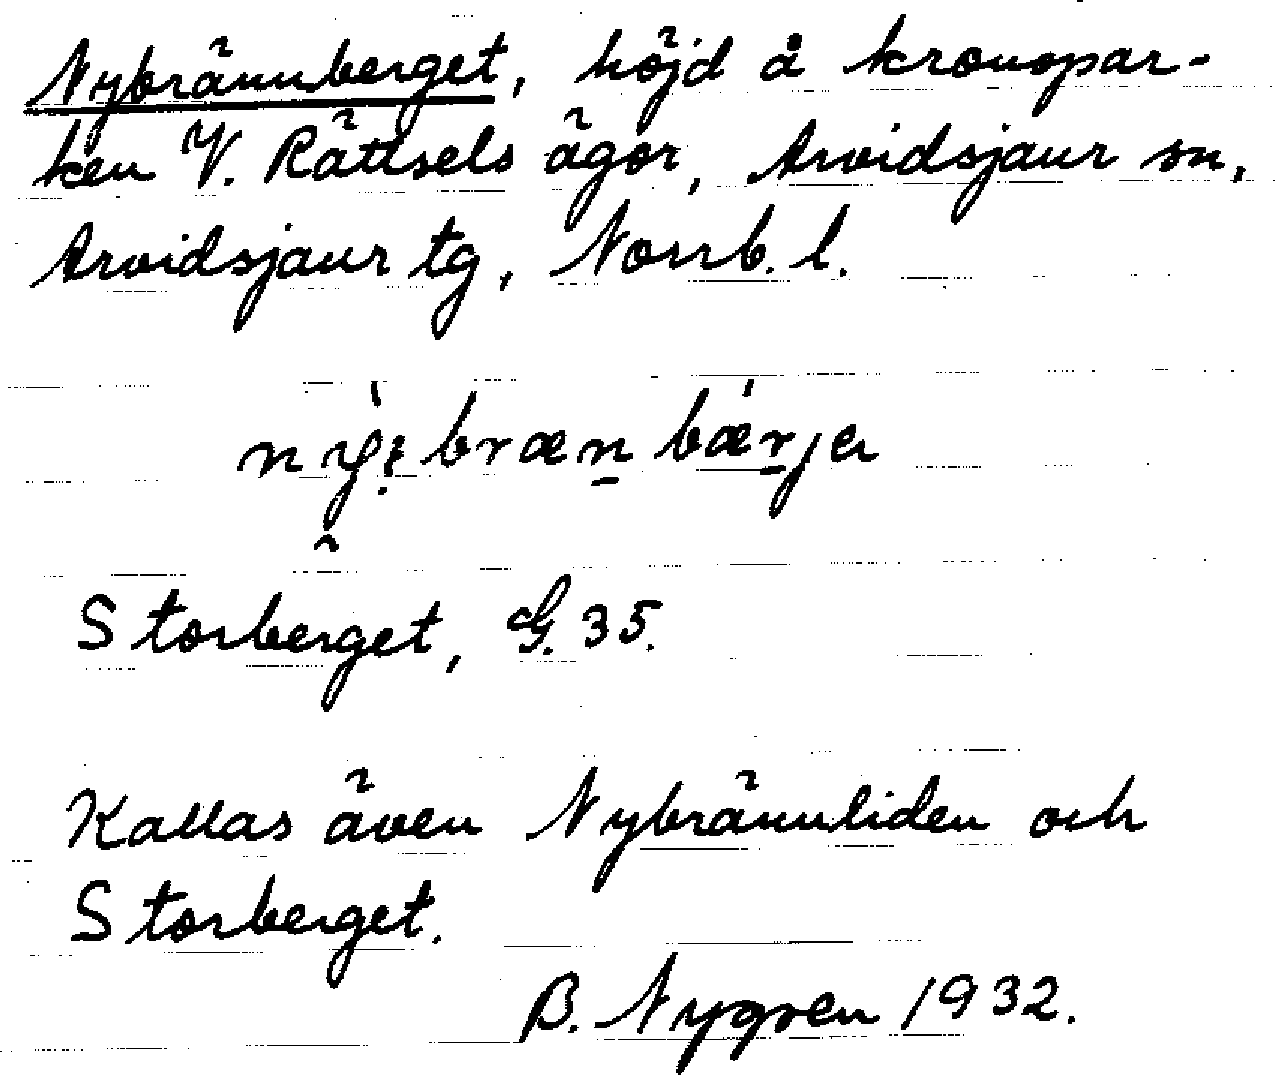 Nybrännberget, höjd å kronopar-
ken V. Rättsels ägor, Arvidsjaur sn,
Arvidsjaur tg, Norrb. l.
Storberget, G. 35.
Kallas även Nybrännliden och
Storberget.
B. Nygren 1932.